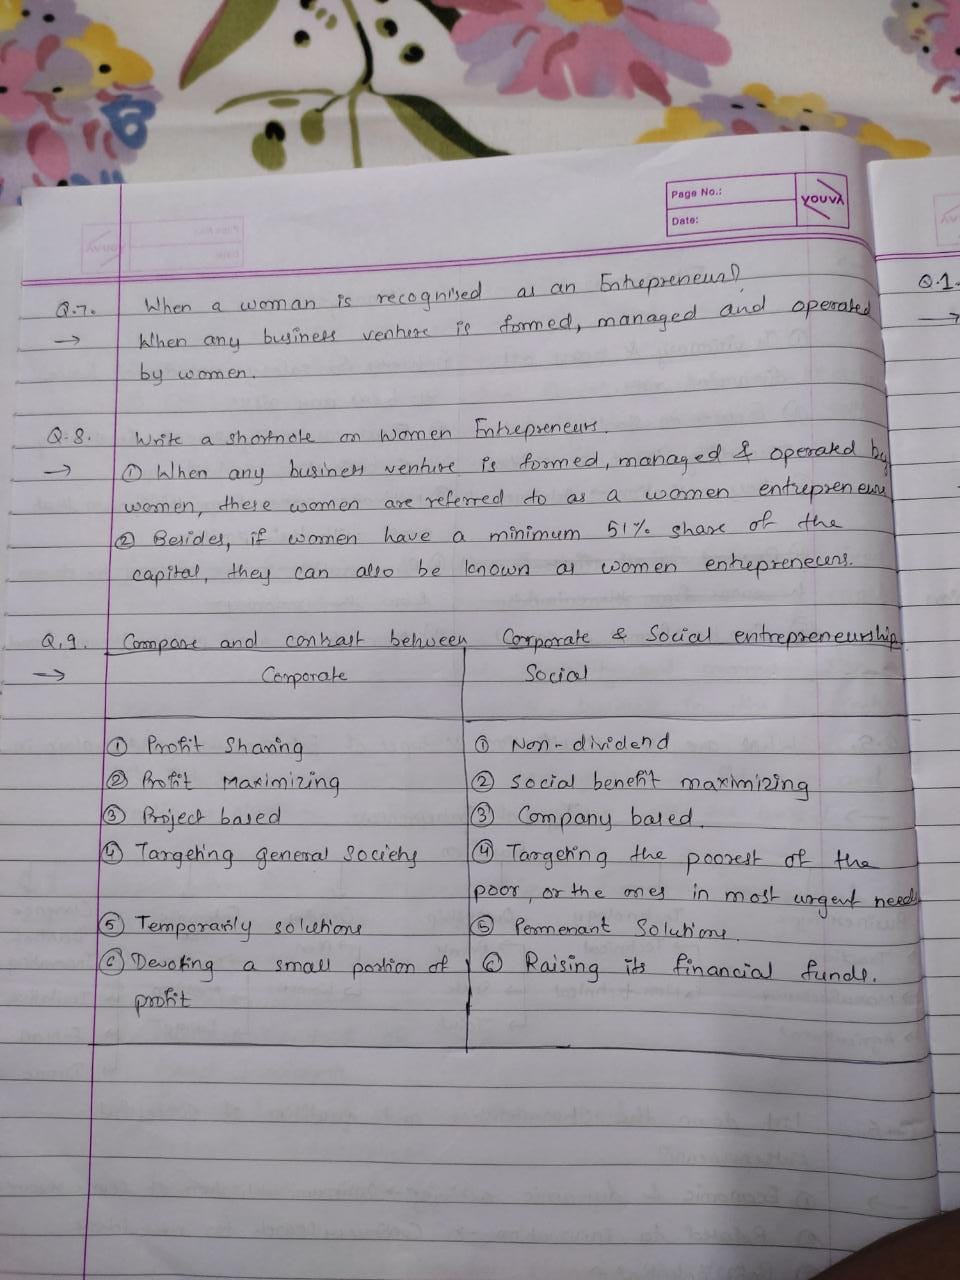 Page No.:
Date:
YOUVA
Q.7. When a woman is recognised as an Entrepreneur?
→ When any business venture is formed, managed and operated
by women.
Q.8. Write a shortnote on Women Entrepreneurs.
→ ① When any business venture is formed, managed & operated by
women, these women are referred to as a women entrepreneurs
② Besides, if women have a minimum 51% share of the
capital, they can also be known as women entreprenecers.
Q.1.
→
Q.9. Compare and contrast between Corporate & Social entrepreneurship
→ Corporate Social
① Profit Sharing ① Non-dividend
② Profit Maximizing ② Social benefit maximizing
③ Project based ③ Company based.
④ Targeting general society ④ Targeting the poorest of the
poor, or the ones in most urgent needs
⑤ Temporarily solutions ⑤ Permenant Solutions.
⑥ Devoting a small portion of ⑥ Raising its financial funds.
profit